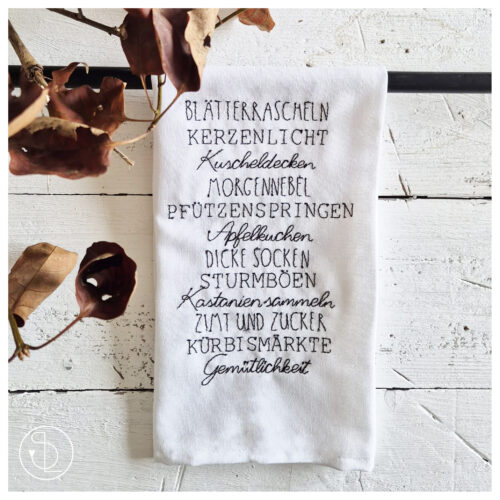 BLÄTTERRASCHELN
KERZENLICHT
Kuscheldecken
MORGENNEBEL
PFÜTZENSPRINGEN
Apfelkuchen
DICKE SOCKEN
STURMBÖEN
Kastanien sammeln
ZIMT UND ZUCKER
KÜRBISMÄRKTE
Gemütlichkeit